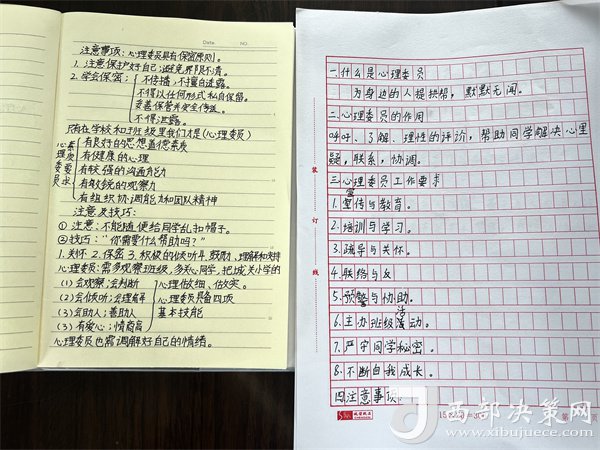 Date. NO.
注意事项：心理委员具有保密原则。
1. 注意保护好自己：避免界限不清。
2. 学会保密：
不传播、不擅自透露。
不得以任何形式私自保留。
妥善保管并安全传送。
不得泄露。
只有在学校和班级里我们才是(心理委员)
心理委员素项要求
有良好的思想道德素质
有健康的心理
有较强的沟通能力
有敏锐的观察力
有组织协调能力和团队精神
注意及技巧：
①注意：不能随便给同学乱扣帽子。
②技巧：“你需要什么帮助吗？”
1.关怀 2.保密 3.积极的倾听 4.鼓励、理解和支持
心理委员：需多观察班级，多关心同学，把城关小学的
(1)会观察；会判断
(2)会倾听；会理解
(3)会助人；善助人
(3)有爱心；情商高
心理做细、做实。
心理委员具备四项
基本技能
心理委员也需调解好自己的情绪。
一.什么是心理委员
为身边的人提供帮，默默无闻。
二.心理委员的作用
倾听、了解、理性的评价，帮助同学解决心里
疑，联系，协调。
三.心理委员工作要求
1.宣传与教育。
2.培训与学习。
3.疏导与关怀。
4.联络与反
5.预警与协助。
6.主办班级活动。
7.严守同学秘密。
8.不断自我成长。
四注意事项：
装
订
线
15×20=300
第 页
西部决策网
www.xibujuece.com